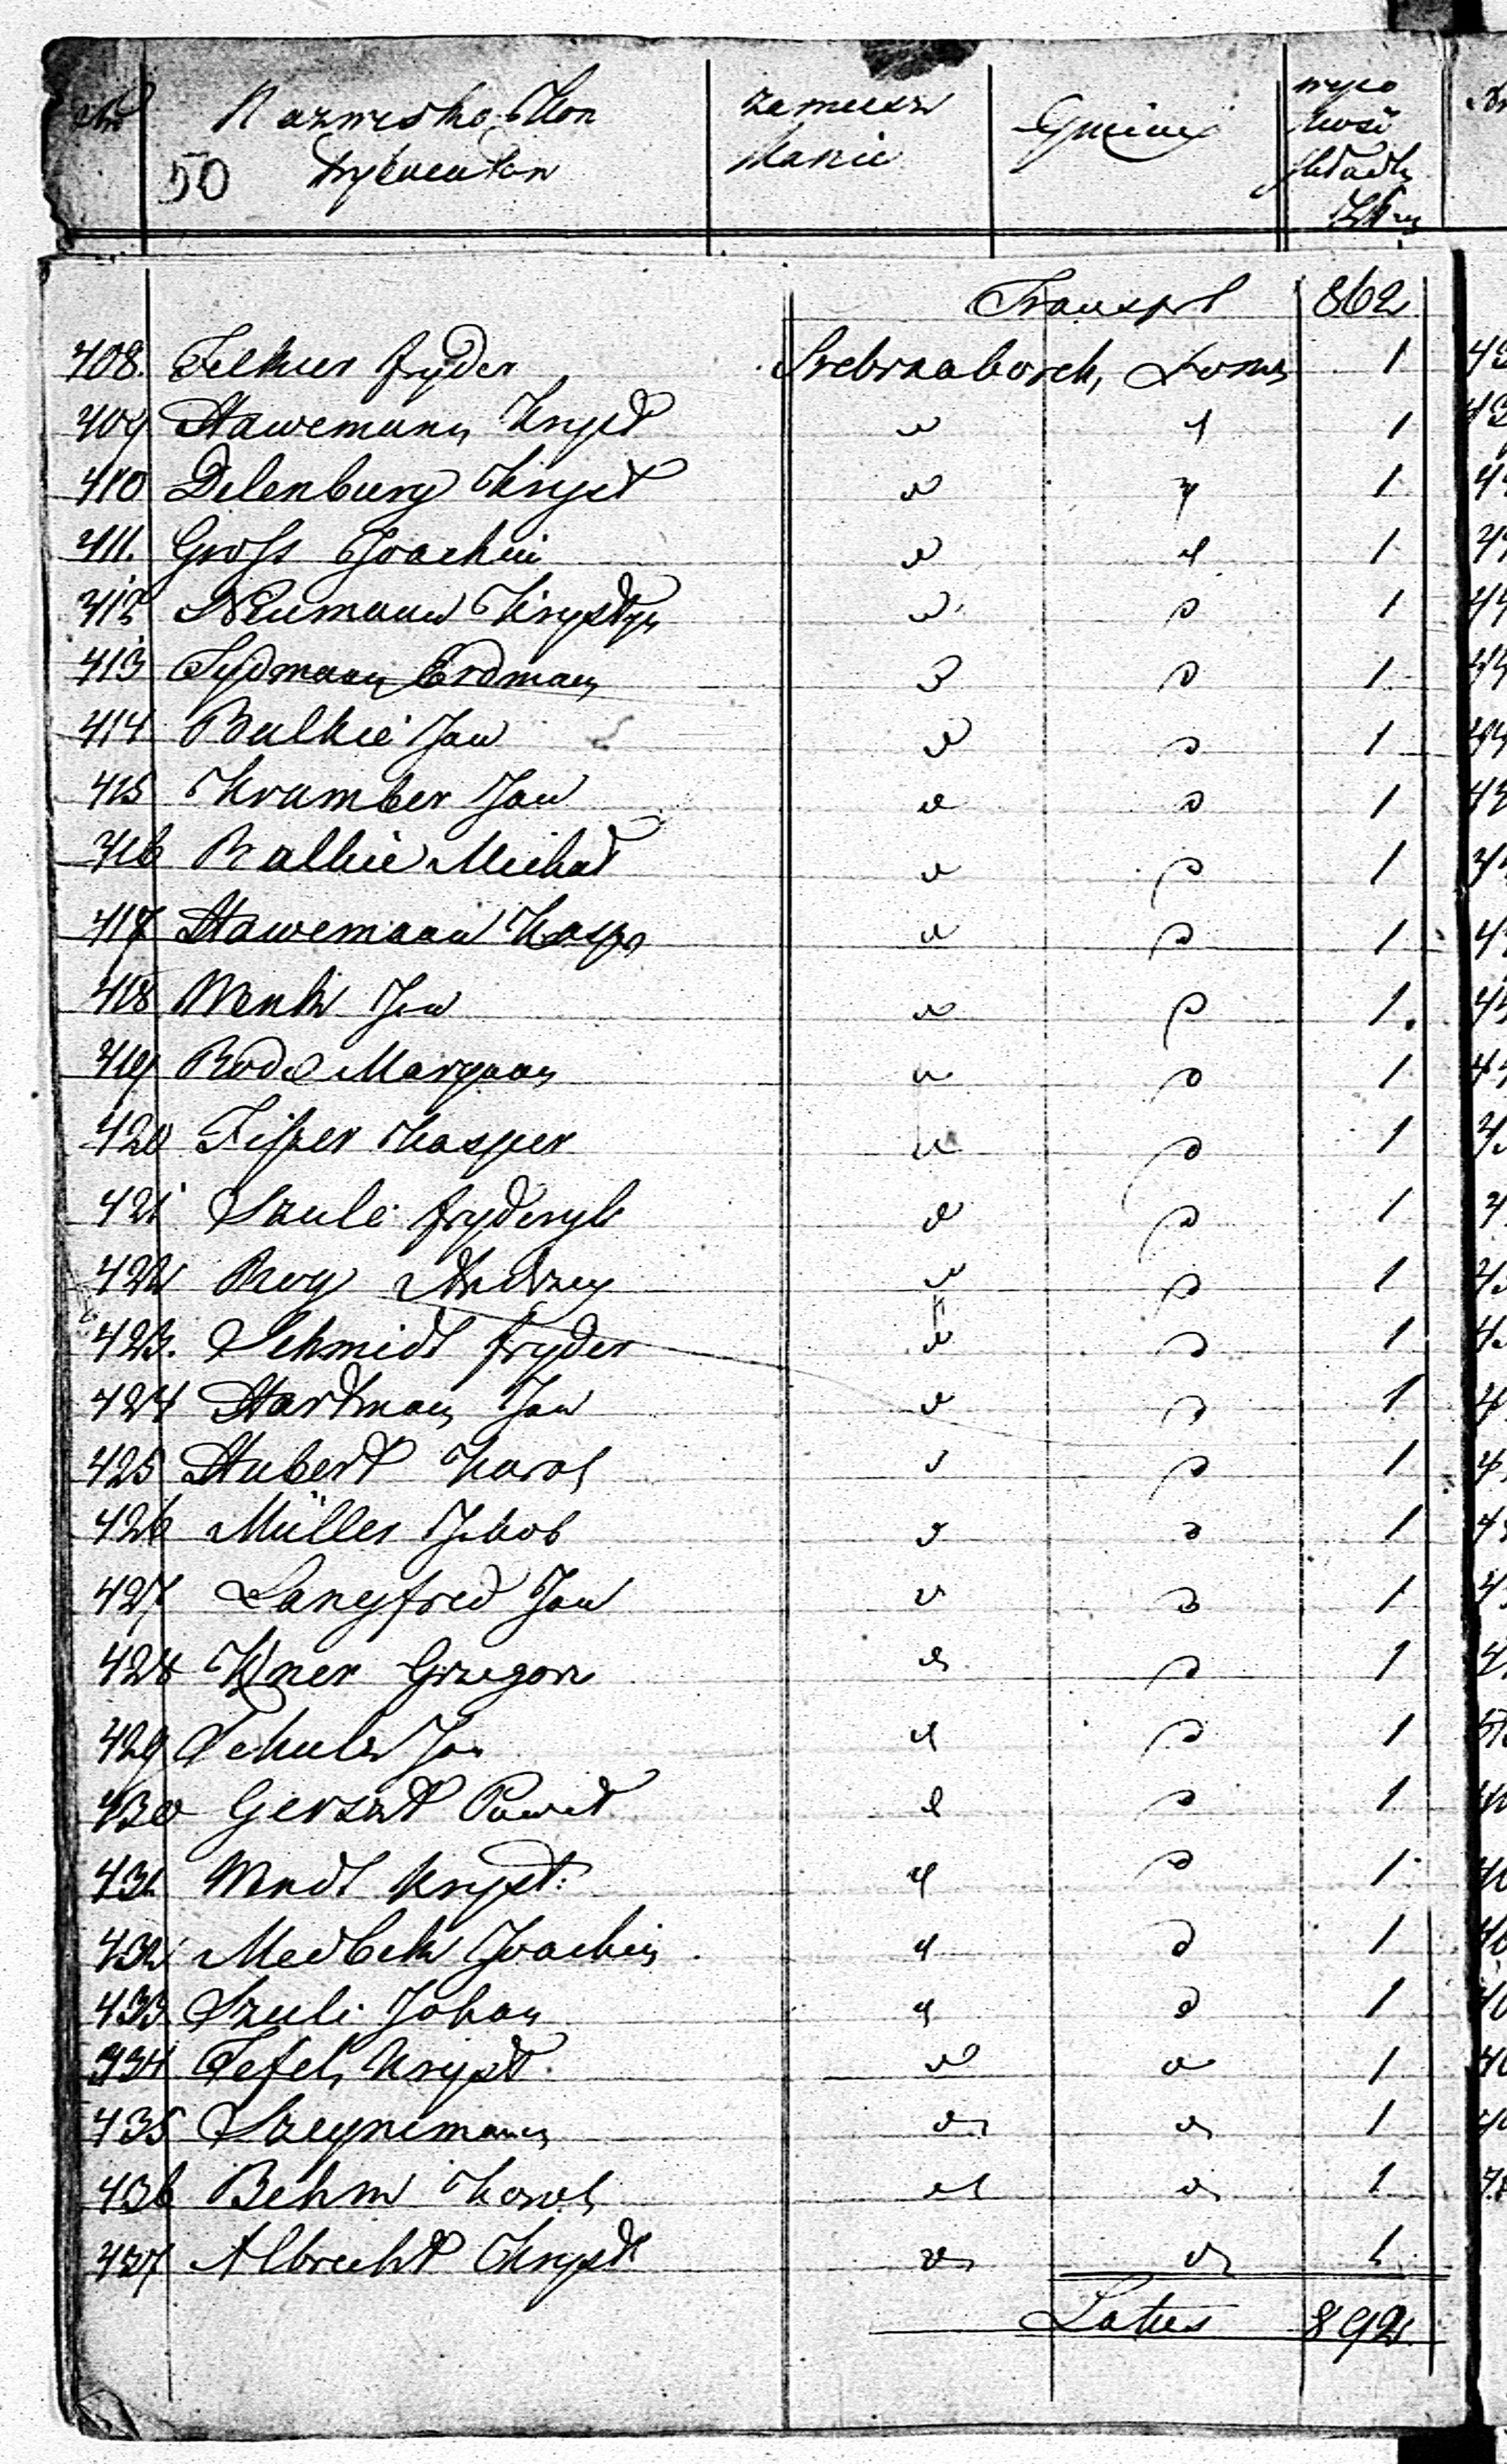 Nro Nazwisko Kon zamiesz Gminy wyso
50 trybuentow kanie kość
składki
Transprt 862
408. Felkner fryder Srebrnaborek, Łom 1
409 Hawemann Kryst " " 1
410 Delenburg Kryst " " 1
411. Groſs Joachim " " 1
412 Neumann Krystyn " " 1
413 Sydmann Erdman " " 1
414 Bulkie Jan " " 1
415 Krumber Jan " " 1
416 Balkie Michał " " 1
417 Hawemann Kaspr " " 1
418 Wenk Jan " " 1
419 Rode Maryann " " 1
420 Fiszer Kasper " " 1
421 Szulc fryderyk " " 1
422 Roy Andrzey " " 1
423. Schmidt fryder " " 1
424 Hartman Jan " " 1
425 Hubert Karol " " 1
426 Müller Jakob " " 1
427 Langfred Jan " " 1
428 Kner Grzegorz " " 1
429 Schulz Jan " " 1
430 Gerszt Paweł " " 1
431 Wendt Kryst: " " 1
432 Medbek Joachim " " 1
433 Szulc Johan " " 1
434 Tefel, Kryst " " 1
435 Szeynemann " " 1
436 Behm Karol " " 1
437 Albrecht Kryst " " 1
Latus 892